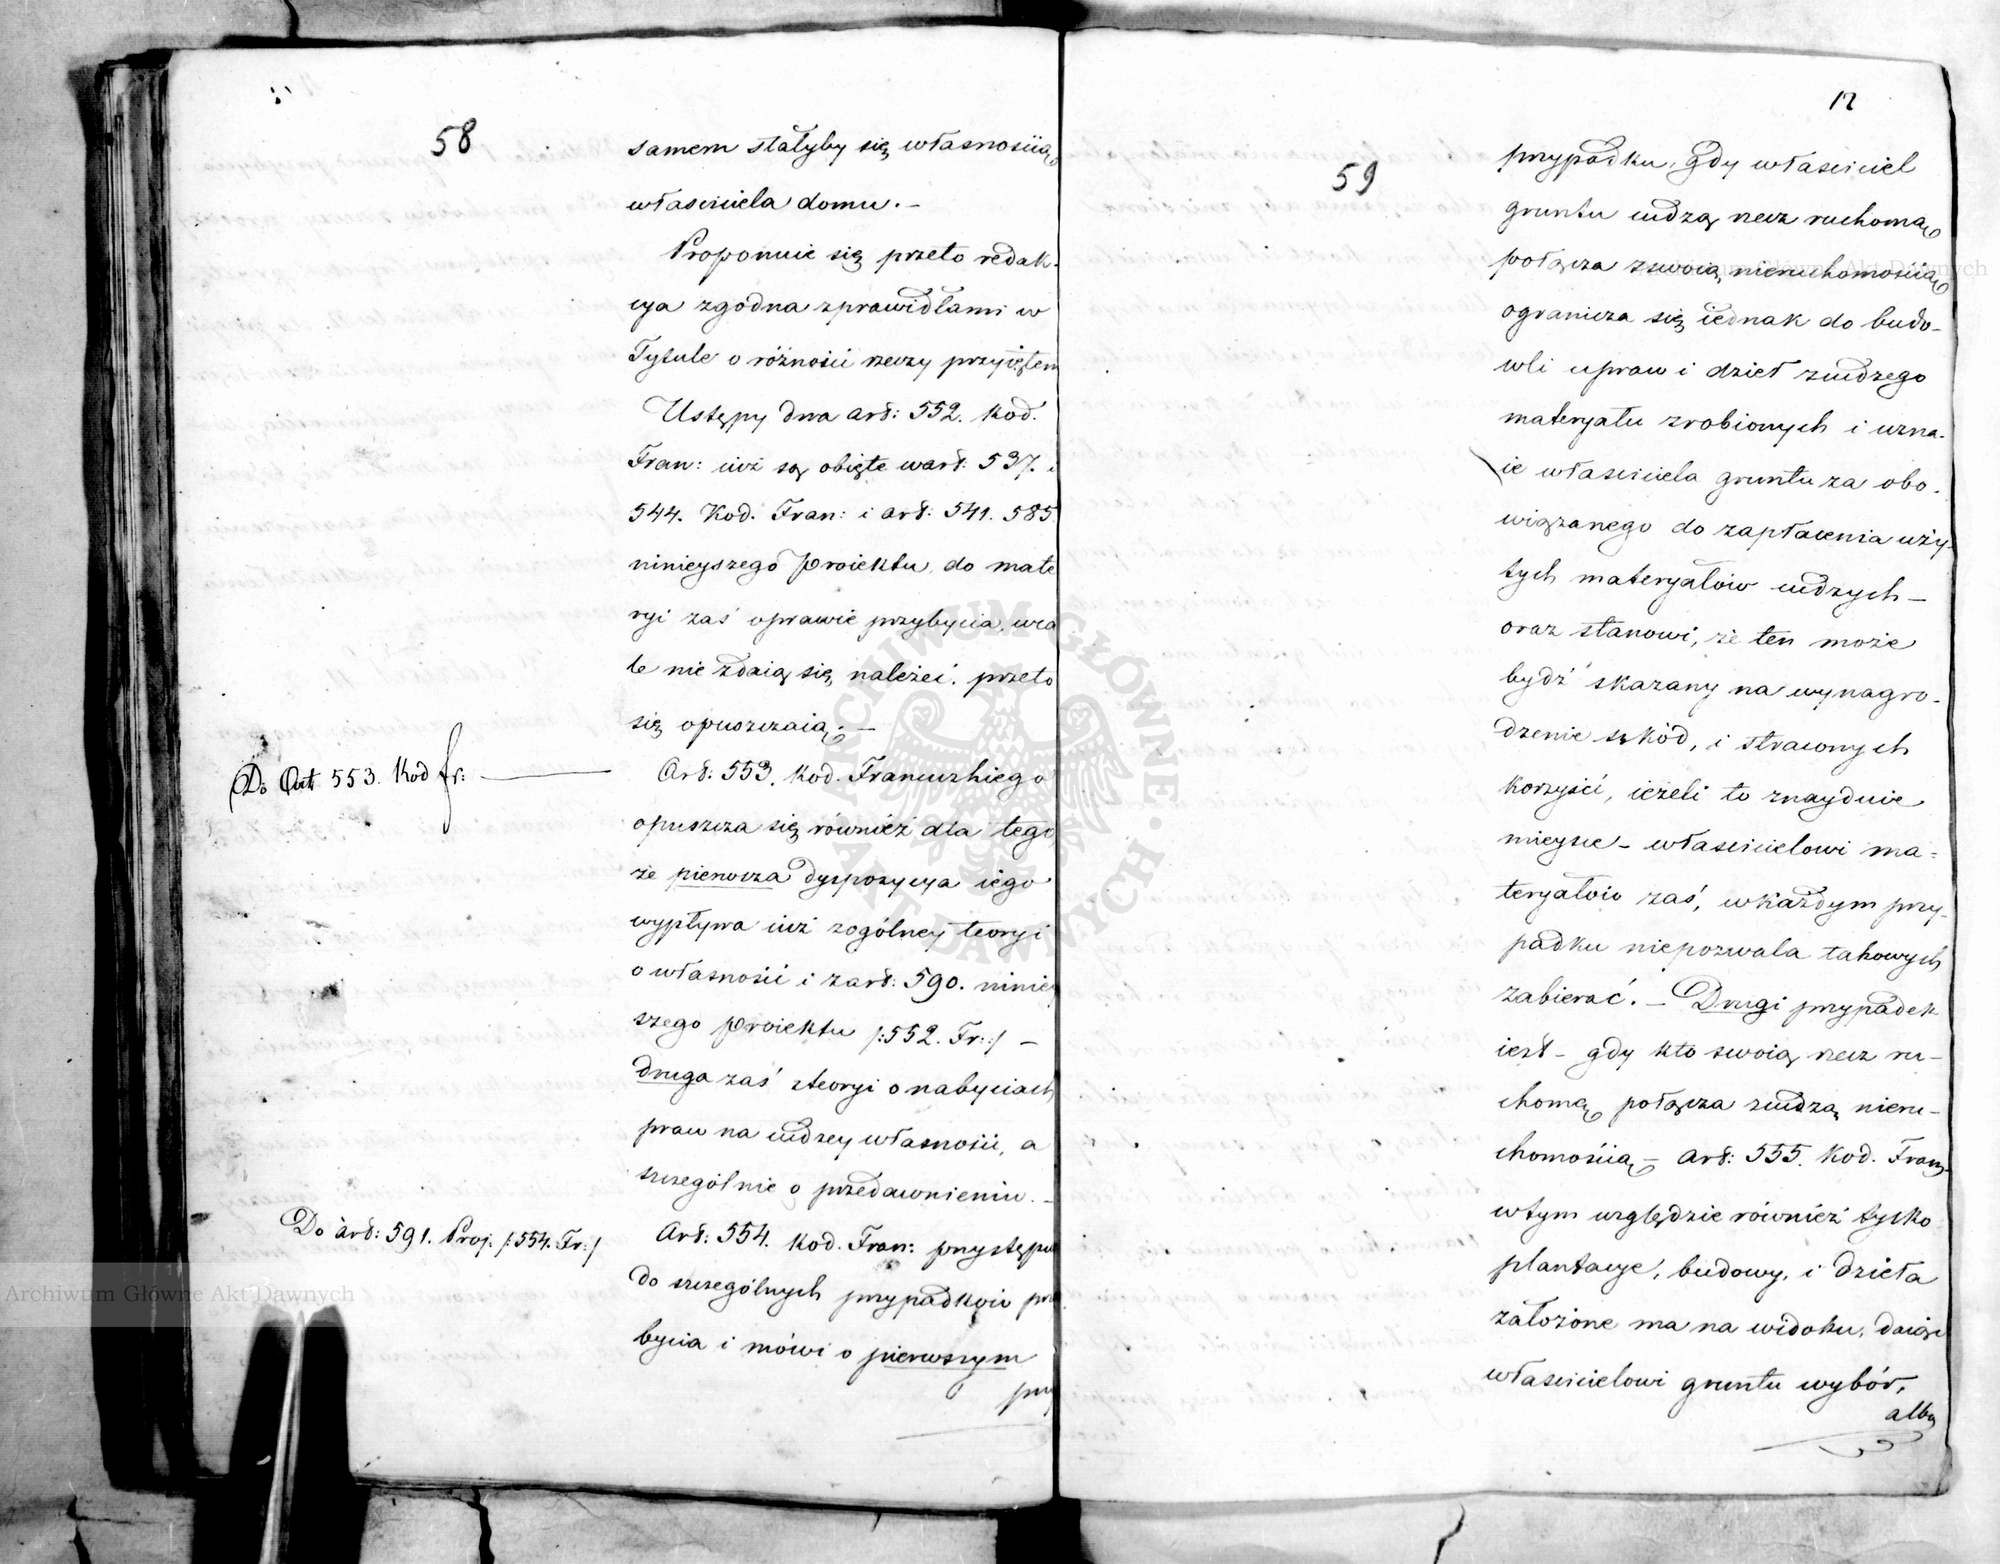 58
samem stałyby się własnością
właściciela domu. —
Proponuie się przeto redak-
cya zgodna z prawidłami w
Tytule o różności rzeczy przyiętem
Ustępy dwa art: 552. Kod.
Fran: iuż są obięte w art: 537. i
544. Kod. Fran: i art: 541. 585.
ninieyszego Proiektu, do mate
ryi zaś o prawie przybycia, wca
le nie zdaią się należeć, przeto
się opuszczaią. —
Do Art 553. Kod fr:
Art: 553. Kod. Francuzkiego
opuszcza się również dla tego
że pierwsza dyspozycya iego
wypływa iuż z ogólney teoryi
o własności i z art: 590. niniey
szego Proiektu /:552. Fr:/ —
druga zaś z teoryi o nabyciach
praw na cudzey własności, a
szczególnie o przedawnieniu. —
Do art: 591. Proj: /:554. Fr:/
Art: 554. Kod. Fran: przystępuie
do szczególnych przypadków przy
bycia i mówi o pierwszym
przy
12
59
przypadku, gdy właściciel
gruntu cudzą rzecz ruchomą
połącza z swoią nieruchomością
ogranicza się iednak do budo-
wli upraw i dzieł z cudzego
materyału zrobionych i uzna-
ie właściciela gruntu za obo-
wiązanego do zapłacenia uży-
tych materyałów cudzych —
oraz stanowi, że ten może
bydź skazany na wynagro-
dzenie szkód, i straconych
korzyści, ieżeli to znayduie
mieysce — właścicielowi ma-
teryałów zaś, w każdym przy-
padku niepozwala takowych
zabierać. — Drugi przypadek
iest — gdy kto swoią rzecz ru-
chomą połącza z cudzą nieru-
chomością — art: 555. Kod. Fran:
w tym względzie również tylko
plantacye, budowy, i dzieła
założone ma na widoku, daiąc
właścicielowi gruntu wybór,
albo
Archiwum Główne Akt Dawnych
Archiwum Główne Akt Dawnych
ARCHIWUM GŁÓWNE AKT DAWNYCH